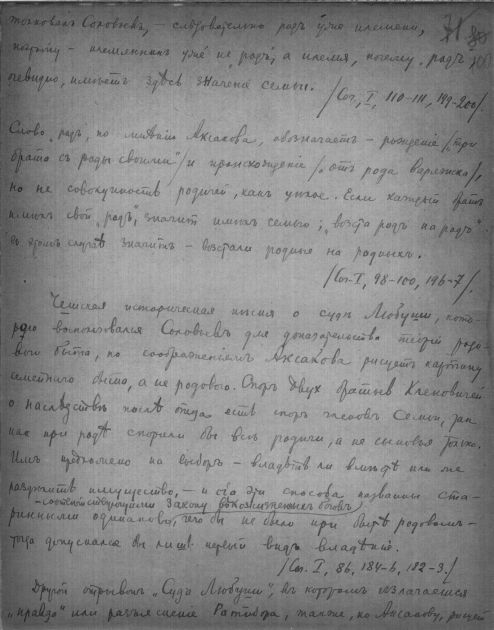 толковалъ Соловьевъ, – слѣдовательно родъ уже племени,
потому – племянникъ уже не „родъ“, а племя, почему „родъ“
очевидно, имѣетъ здѣсь значенiе семьи.
/Соч., I, 110-111, 199-200/.
Слово „родъ“, по мнѣнiю Аксакова, обозначаетъ – рожденiе /„три
брата съ роды своими“/ и происхожденiе /„отъ рода варяжска“/,
но не совокупность родичей, какъ униое. Если каждый братъ
имѣлъ свой „родъ“, значитъ имѣлъ семью; „воста родъ на родъ“
въ этомъ случаѣ значитъ – возстали родные на родныхъ.
/Соч. I, 98-100, 196-7/.
Чешская историческая пѣсня о судѣ Любуши, кото-
рою воспользовался Соловьевъ для доказательства теорiи родо-
вого быта, по соображенiямъ Аксакова рисуетъ картину
семейнаго быта, а не родового. Споръ двухъ братьевъ Кленовичей
о наслѣдствѣ послѣ отца есть споръ членовъ семьи, такъ
какъ при родѣ спорили бы всѣ родичи, а не сыновья только.
Имъ предложено на выборъ – владѣть ли вмѣстѣ или же
раздѣлить имущество, – и оба эти способа названы ста-
– соотвѣтствующими закону вѣкожизненныхъ боговъ
ринными одинаково, чего бы не было при бытѣ родовомъ –
тогда допускался бы лишь первый видъ владѣнiя.
/Соч. I, 86, 184-6, 182-3./
Другой отрывокъ „Судъ Любуши“, въ которомъ излагается
„правда“ или разъясненiе Ратибора, также, по Аксакову, рисуетъ